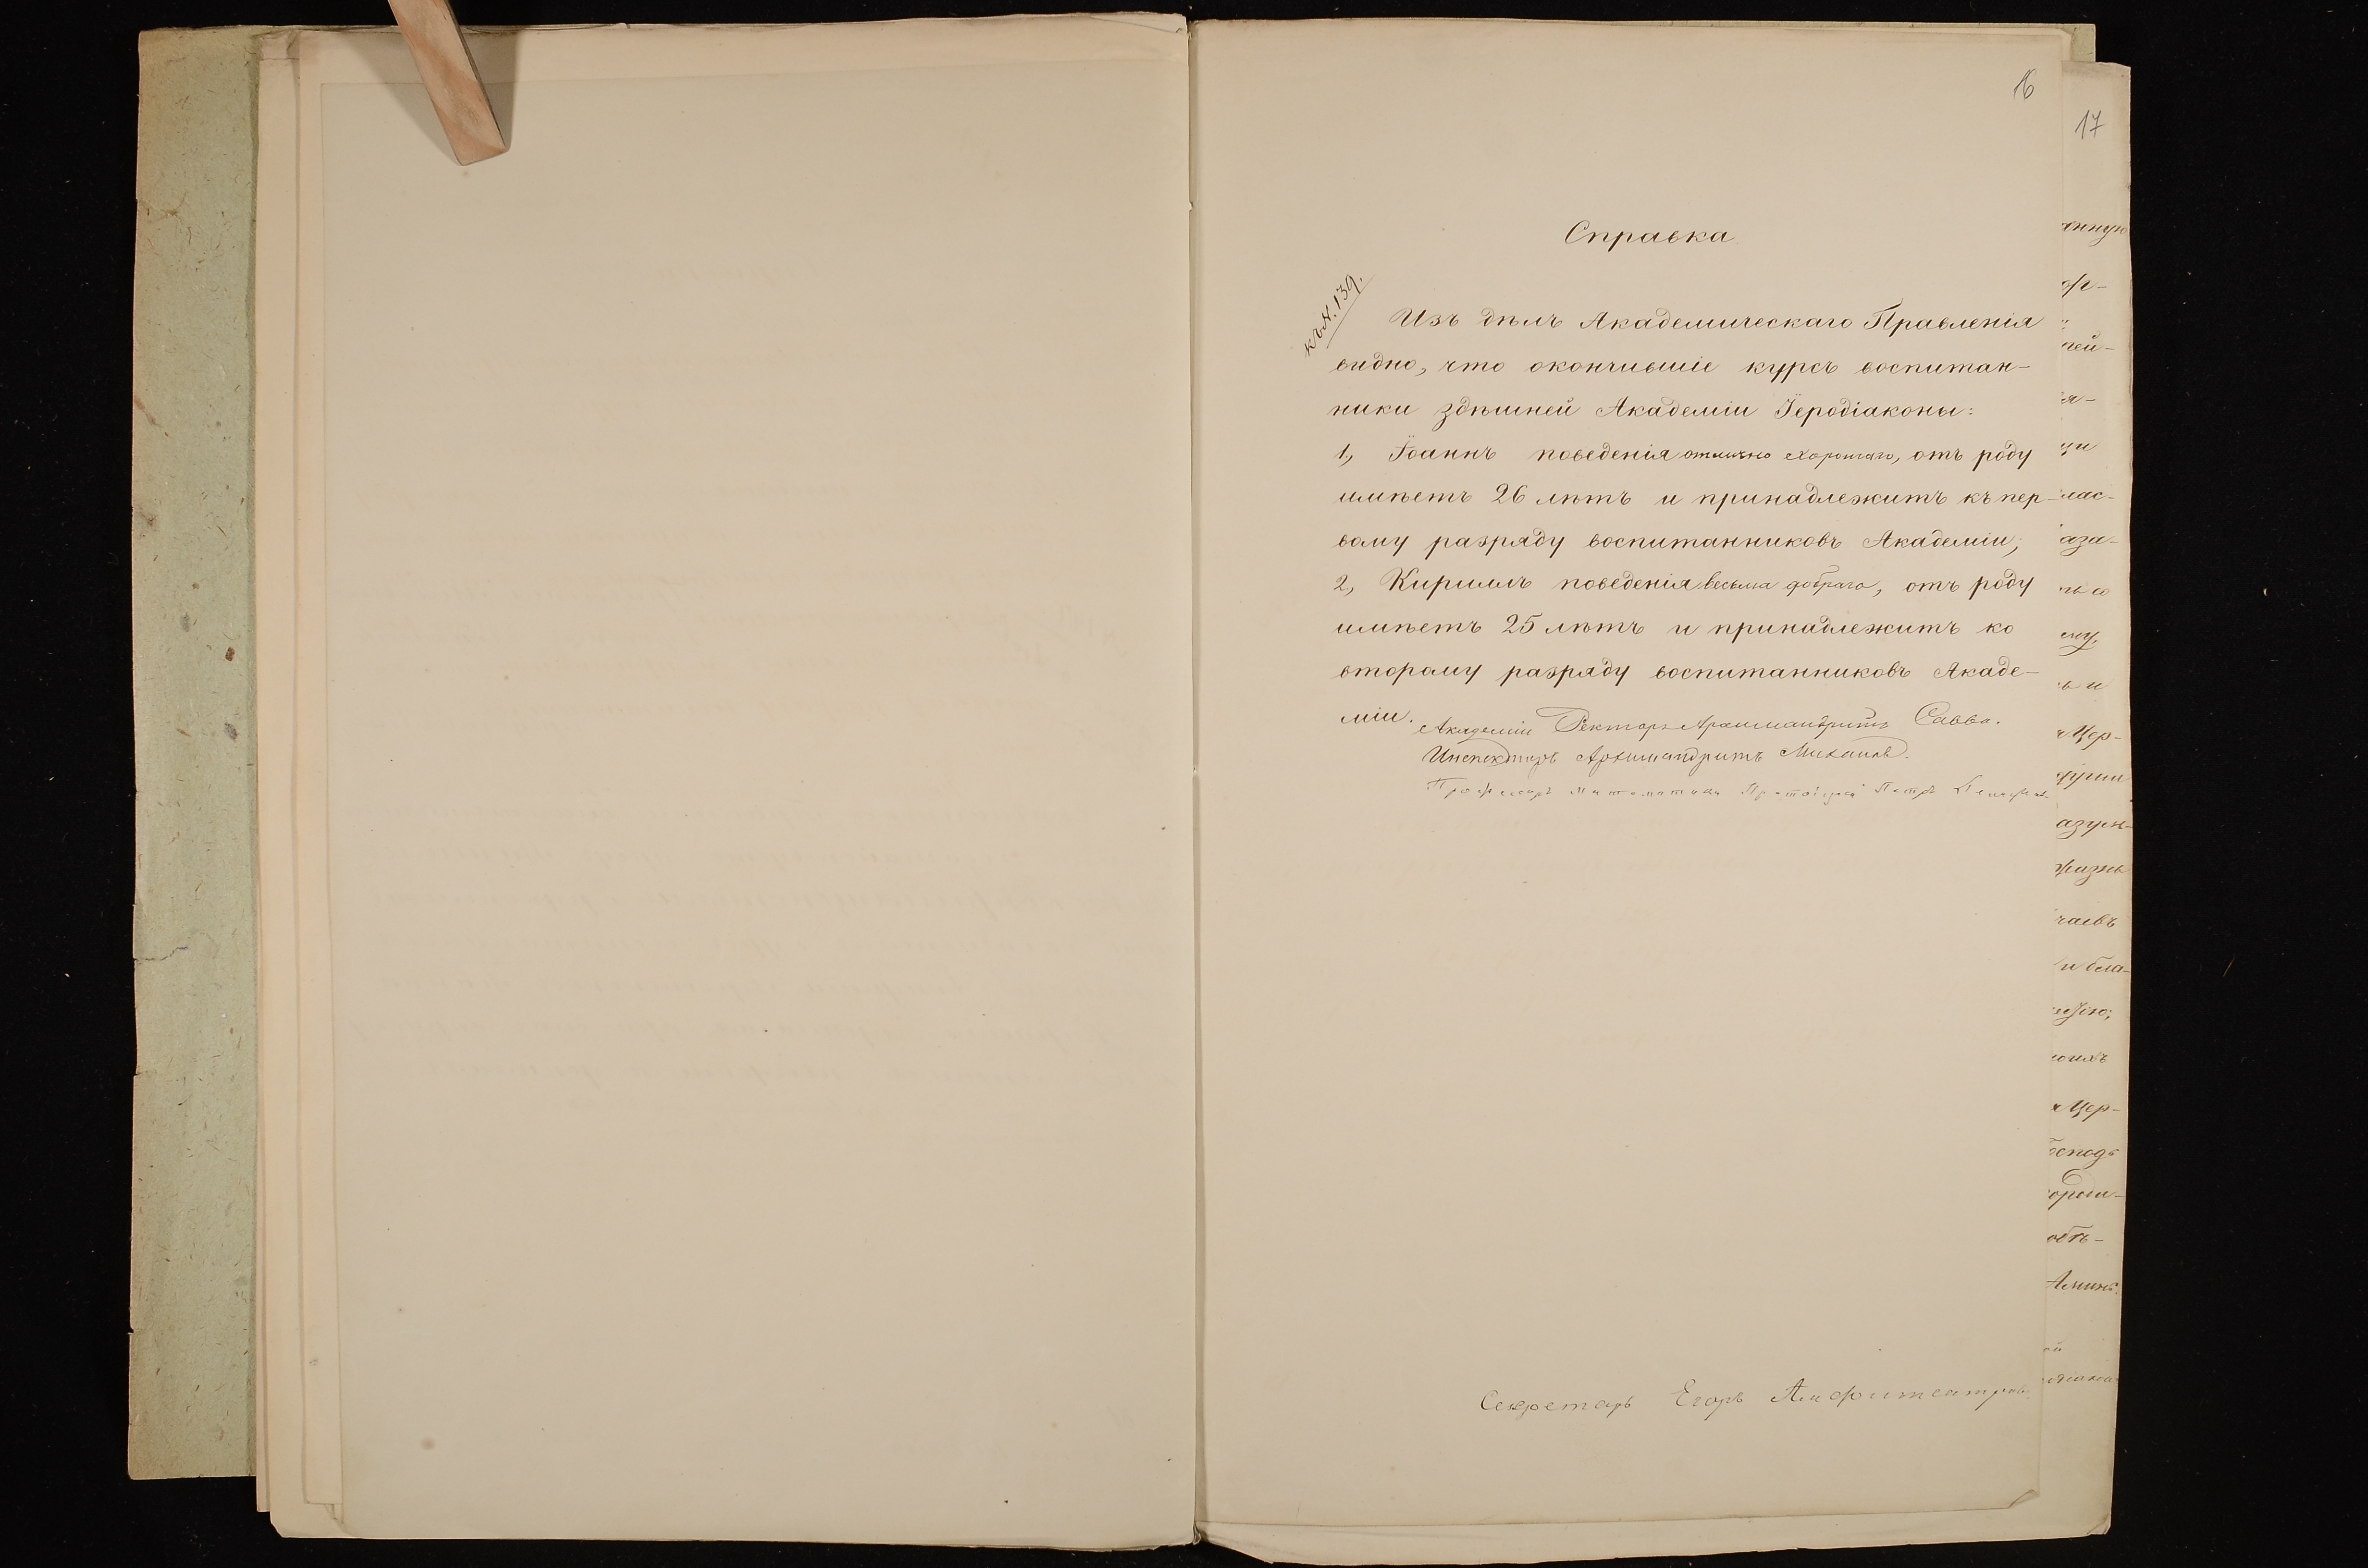 16
Справка
къ N. 139.
Изъ дѣлъ Академическаго Правленія
видно, что окончившіе курсъ воспитан-
ники здѣшней Академіи Іеродіаконы:
1, Іоаннъ поведенія отлично хорошаго, отъ роду
имѣетъ 26 лѣтъ и принадлежитъ къ пер-
вому разряду воспитанниковъ Академіи;
2, Кириллъ поведенія весьма добраго, отъ роду
имѣетъ 25 лѣтъ и принадлежитъ ко
второму разряду воспитанниковъ Акаде-
міи.
Академіи Ректоръ Архимандритъ Савва.
Инспекторъ Архимандритъ Михаилъ.
Профессоръ Математики Протоіерей Петръ
Секретарь Егоръ Амфитеатровъ.
17
нную
ор-
ней-
я-
ци
лас-
аза-
ему,
ь и
Цер-
азум-
жизнь
чаевъ
и бла-
Цер-
обѣ-
Аминь.